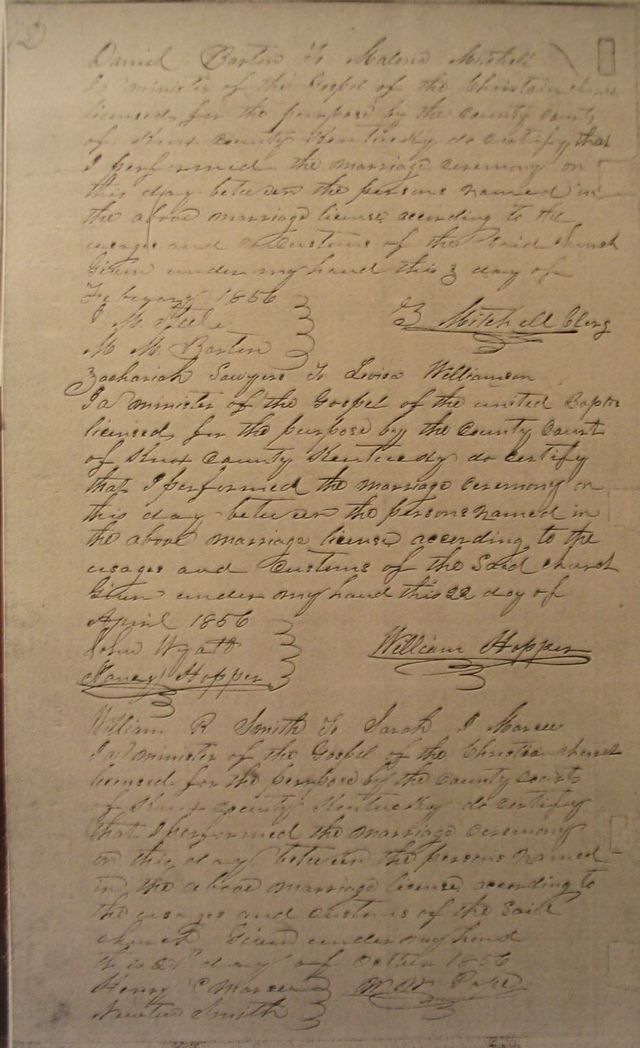 Daniel Barton To Malena Mitchell
I a minister of the Gospel of the Christain church
licensed for the purpose by the county courts
of Knox County Kentucky do certify that
I performed the marriage ceremony on
this day between the persons named in
the above marriage license according to the
usages and customs of the Said church
Given under my hand this 3 day of
February 1856
J M
B Mitchell Clerg
M M Barton
Zachariah Sawyers To Lovisa Williamson
I a minister of the Gospel of the united Baptis
licensed for the purpose by the County Court
of Knox County Kentucky do certify
that I performed the marriage ceremony on
this day between the persons named in
the above marriage license according to the
usages and Customs of the Said church
Given under my hand this 22 day of
April 1856
John Wyatt
William Hopper
Hopper
William R Smith To Sarah J
I a minister of the Gospel of the Christian church
licensed for the purpose by the County courts
of Knox County Kentucky do certify
that I performed the marriage ceremony
on this day between the persons named
in the above marriage license according to
the usages and customs of the Said
church Given under my hand
this day of 1856
Henry C
W W
Newton Smith